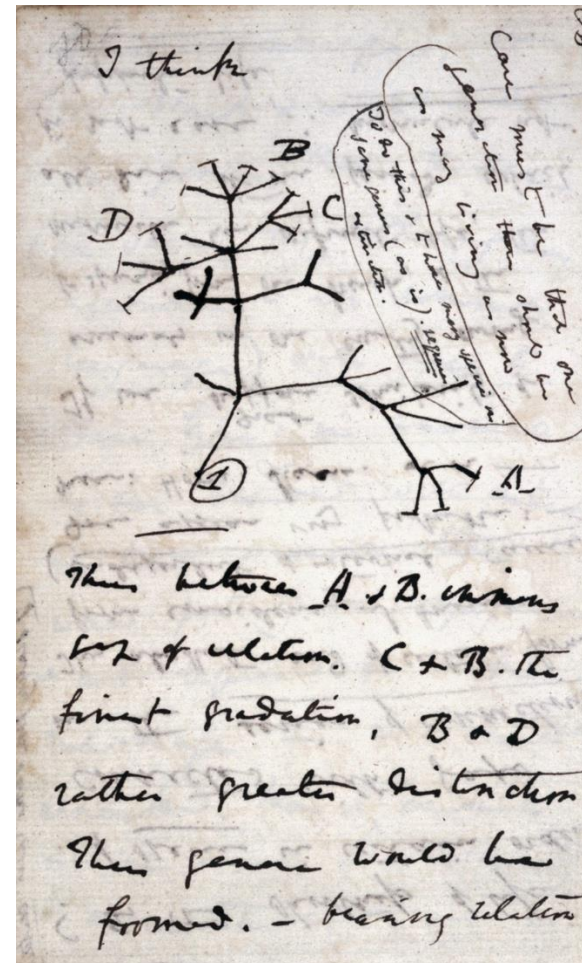 I think
Case must be that one
generation then should be
as many living as now
To do this & to have many species in
same genus (as is) requires
extinction.
B
C
D
A
1
Thus between A & B. immens
gap of relation. C & B. The
finest gradation, B & D
rather greater distinction
Thus genera would be
formed. — bearing relation